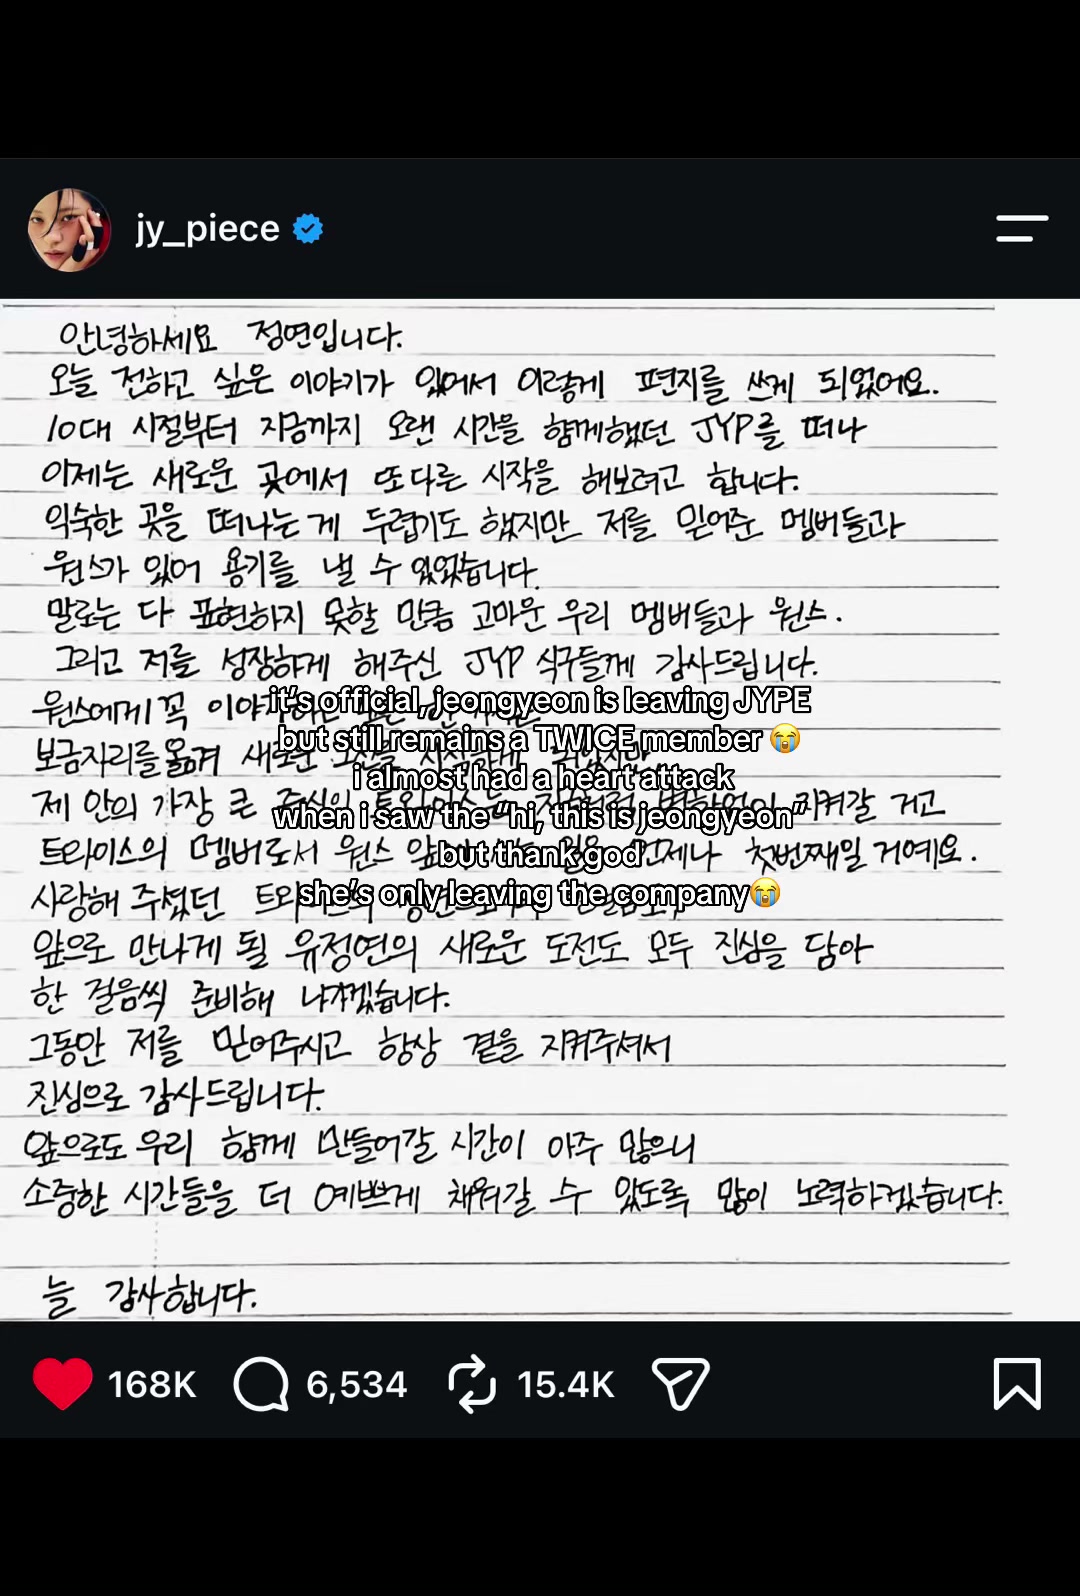 jy_piece
안녕하세요 정연입니다.
오늘 전하고 싶은 이야기가 있어서 이렇게 편지를 쓰게 되었어요.
10대 시절부터 지금까지 오랜 시간을 함께했던 JYP를 떠나
이제는 새로운 곳에서 또다른 시작을 해보려고 합니다.
익숙한 곳을 떠나는게 두렵기도 했지만 저를 믿어준 멤버들과
원스가 있어 용기를 낼 수 있었습니다.
말로는 다 표현하지 못할 만큼 고마운 우리 멤버들과 원스.
그리고 저를 성장하게 해주신 JYP 식구들께 감사드립니다.
원스에게 꼭
보금자리를 옮겨 새로운
제 안의 가장 큰 중심인 지켜갈 거고
트와이스의 멤버로서 원스 언제나 첫번째일 거예요.
사랑해 주셨던
앞으로 만나게 될 유정연의 새로운 도전도 모두 진심을 담아
한 걸음씩 준비해 나가겠습니다.
그동안 저를 믿어주시고 항상 곁을 지켜주셔서
진심으로 감사드립니다.
앞으로도 우리 함께 만들어갈 시간이 아주 많으니
소중한 시간들을 더 예쁘게 채워갈 수 있도록 많이 노력하겠습니다.
늘 감사합니다.
it's official, jeongyeon is leaving JYPE
but still remains a TWICE member 😭
i almost had a heart attack
when i saw the “hi, this is jeongyeon”
but thank god
she's only leaving the company😭
168K 6,534 15.4K